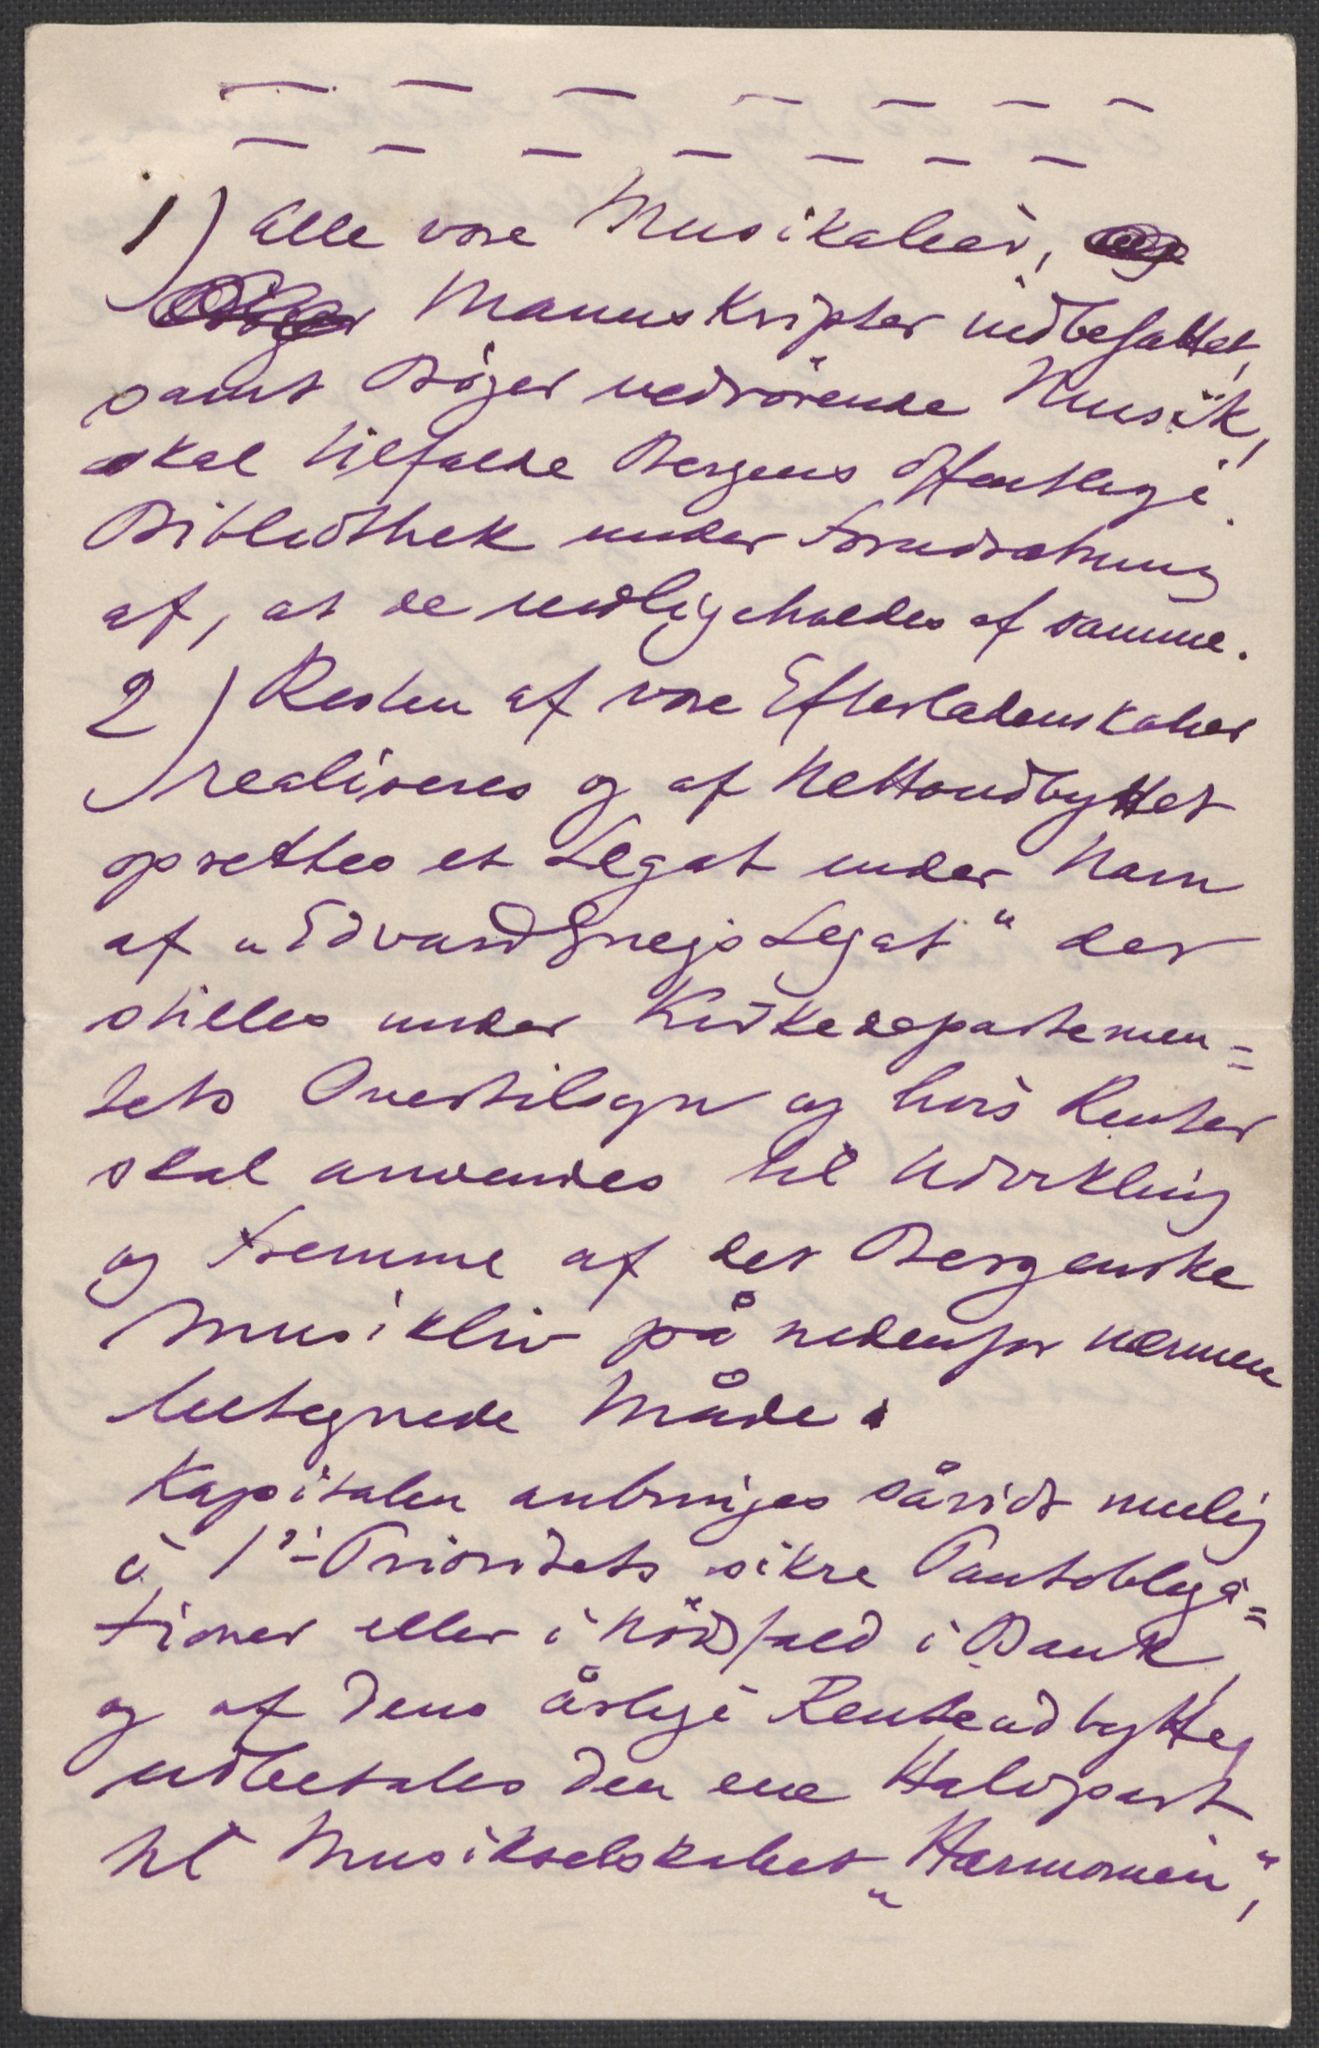 — — — — — — —
— — — — — — —
1) Alle vore Musikalier,
Manuskripter indbefattet,
samt Bøger vedrörende Musik,
skal tilfalde Bergens offentlige
Bibliothek under Forudsætning
af, at de vedligeholdes af samme.
2) Resten af vore Efterladenskaber
realiseres og af Nettoudbyttet
oprettes et Legat under Navn
af „Edvard Griegs Legat“ der
stilles under Kirkedepartemen=
tets Overtilsyn og hvis Renter
skal anvendes til Udvikling
og Fremme af det Bergenske
Musikliv på nedenfor nærmere
betegnede Måde.
Kapitalen anbringes såvidt mulig
i 1ste Prioritets sikre Pantobliga=
tioner eller i Nödsfald i Bank,
og af dens årlige Renteudbytte,
udbetales den ene Halvpart
til Musikselskabet „Harmonien“,